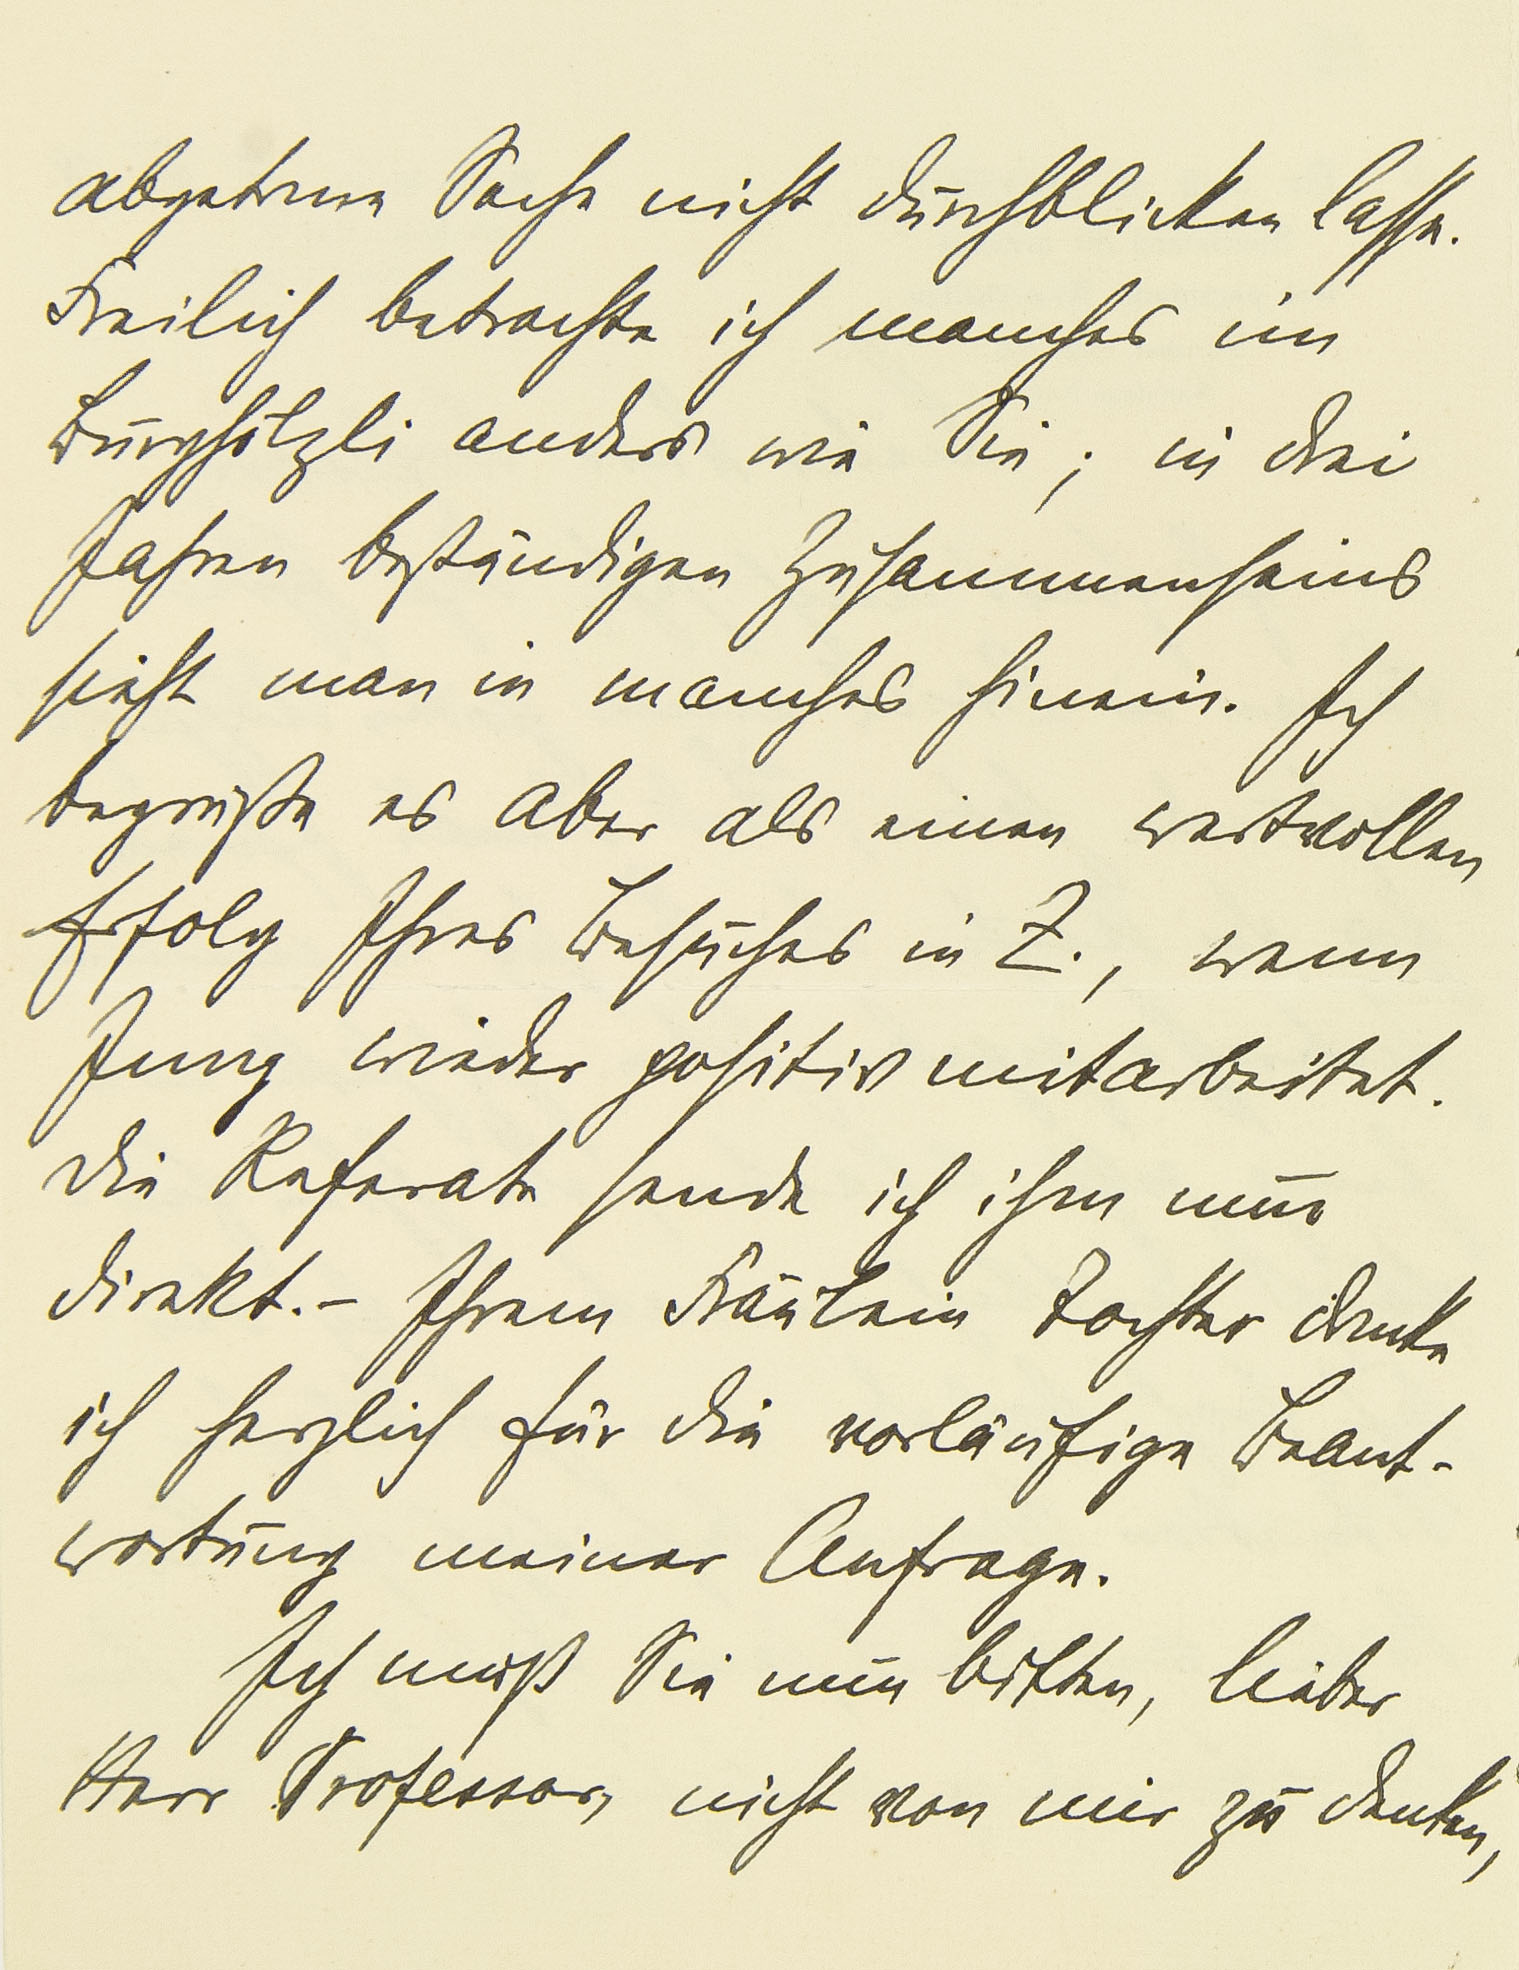 abgetane Sache nicht durchblicken lasse.
Freilich betrachte ich manches im
Burghölzli anders wie Sie; in drei
Jahren beständigen Zusammenseins
sieht man in manches hinein. Ich
begrüße es aber als einen wertvollen
Erfolg Ihres Besuches in Z., wenn
Jung wieder positiv mitarbeitet.
Die Referate sende ich ihm nur
direkt. – Ihrem Fräulein Tochter danke
ich herzlich für die vorläufige Beant-
wortung meiner Anfrage.
Ich muß Sie nun bitten, lieber
Herr Professor, nicht von mir zu denken,